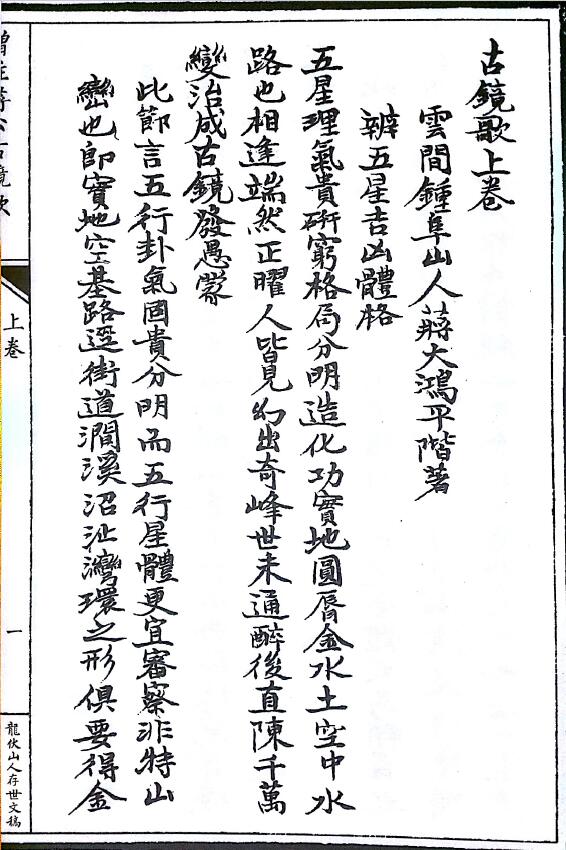 古鏡歌上卷
雲間鍾阜山人蔣大鴻平階著
辨五星吉凶體格
五星理氣貴研窮格局分明造化功實地圓唇金水土空中水
路也相逢端然正曜人皆見幻出奇峰世未通醉後直陳千萬
變冶成古鏡發愚蒙
此節言五行卦氣固貴分明而五行星體更宜審察非特山
巒也即實地空基路逕街道澗溪沼沚灣環之形俱要得金
上卷
一
龍伏山人存世文稿